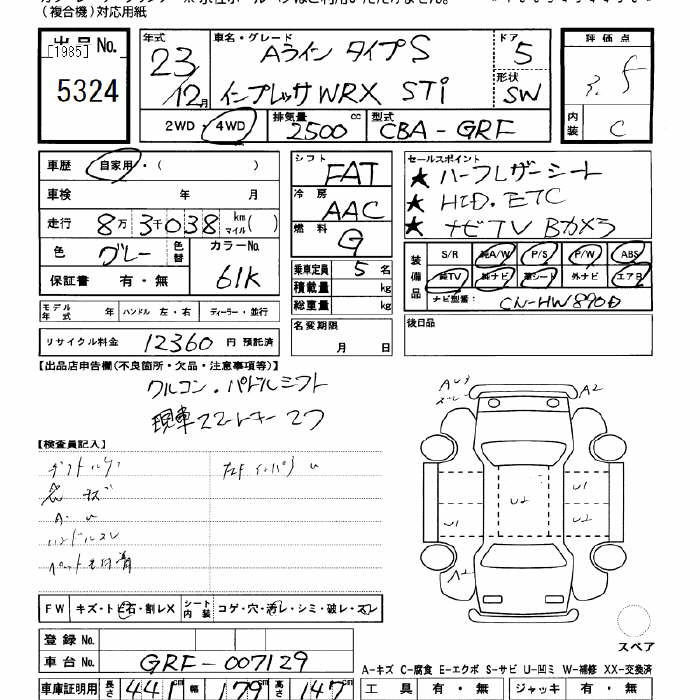 (複合機)対応用紙
出品No.
[1985]
5324
年式
23
12月
車名・グレード
Aライン タイプS
インプレッサWRX STi
ドア
5
形状
SW
評価点
3.5
内装
C
2WD・4WD
排気量
2500 cc
型式
CBA-GRF
車歴
自家用・( )
車検 年 月
走行 8万3千038 km マイル( )
色 グレー
色替
カラーNo.
61K
保証書 有・無
シフト
FAT
冷房
AAC
燃料
G
乗車定員 5 名
積載量 kg
総重量 kg
セールスポイント
★ ハーフレザーシート
★ HID. ETC
★ ナビTV Bカメラ
装備品
S/R 純A/W P/S P/W ABS
純TV 純ナビ 革シート 外ナビ エアB
ナビ型番:
CN-HW890D
モデル年式 年
ハンドル 左・右
ディーラー・並行
リサイクル料金 12360 円 預託済
名変期限
月 日
後日品
【出品店申告欄(不良箇所・欠品・注意事項等)】
クルコン. パドルシフト
現車スマートキー 2ケ
【検査員記入】
A・U
ハンドルスレ
A2
U1
U2
U1
U2
A2
FW
キズ・トビ石・割レX
シート内装
コゲ・穴・汚レ・シミ・破レ・スレ
スペア
登録No.
車台No.
GRF-007129
A-キズ C-腐食 E-エクボ S-サビ U-凹ミ W-補修 XX-交換済
車庫証明用 長さ 441 cm 幅 179 cm 高さ 147 cm
工具 有・無 ジャッキ 有・無